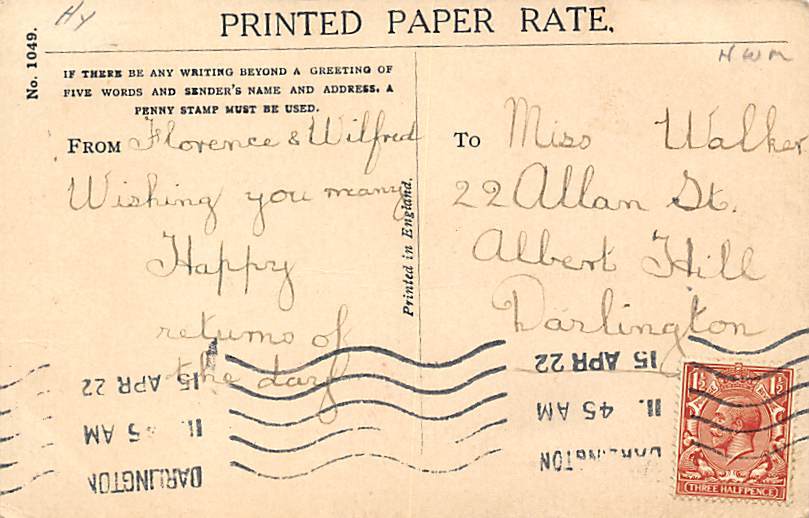 Hy
PRINTED PAPER RATE.
No. 1049.
H W M
IF THERE BE ANY WRITING BEYOND A GREETING OF
FIVE WORDS AND SENDER'S NAME AND ADDRESS, A
PENNY STAMP MUST BE USED.
FROM Florence & Wilfred
Wishing you many
Happy
returns of
the day
Printed in England.
To Miss Walker
22 Allan St.
Albert Hill
Darlington
DARLINGTON
11. 45 AM
15 APR 22
DARLINGTON
11. 45 AM
15 APR 22
1½ 1½
THREE HALFPENCE